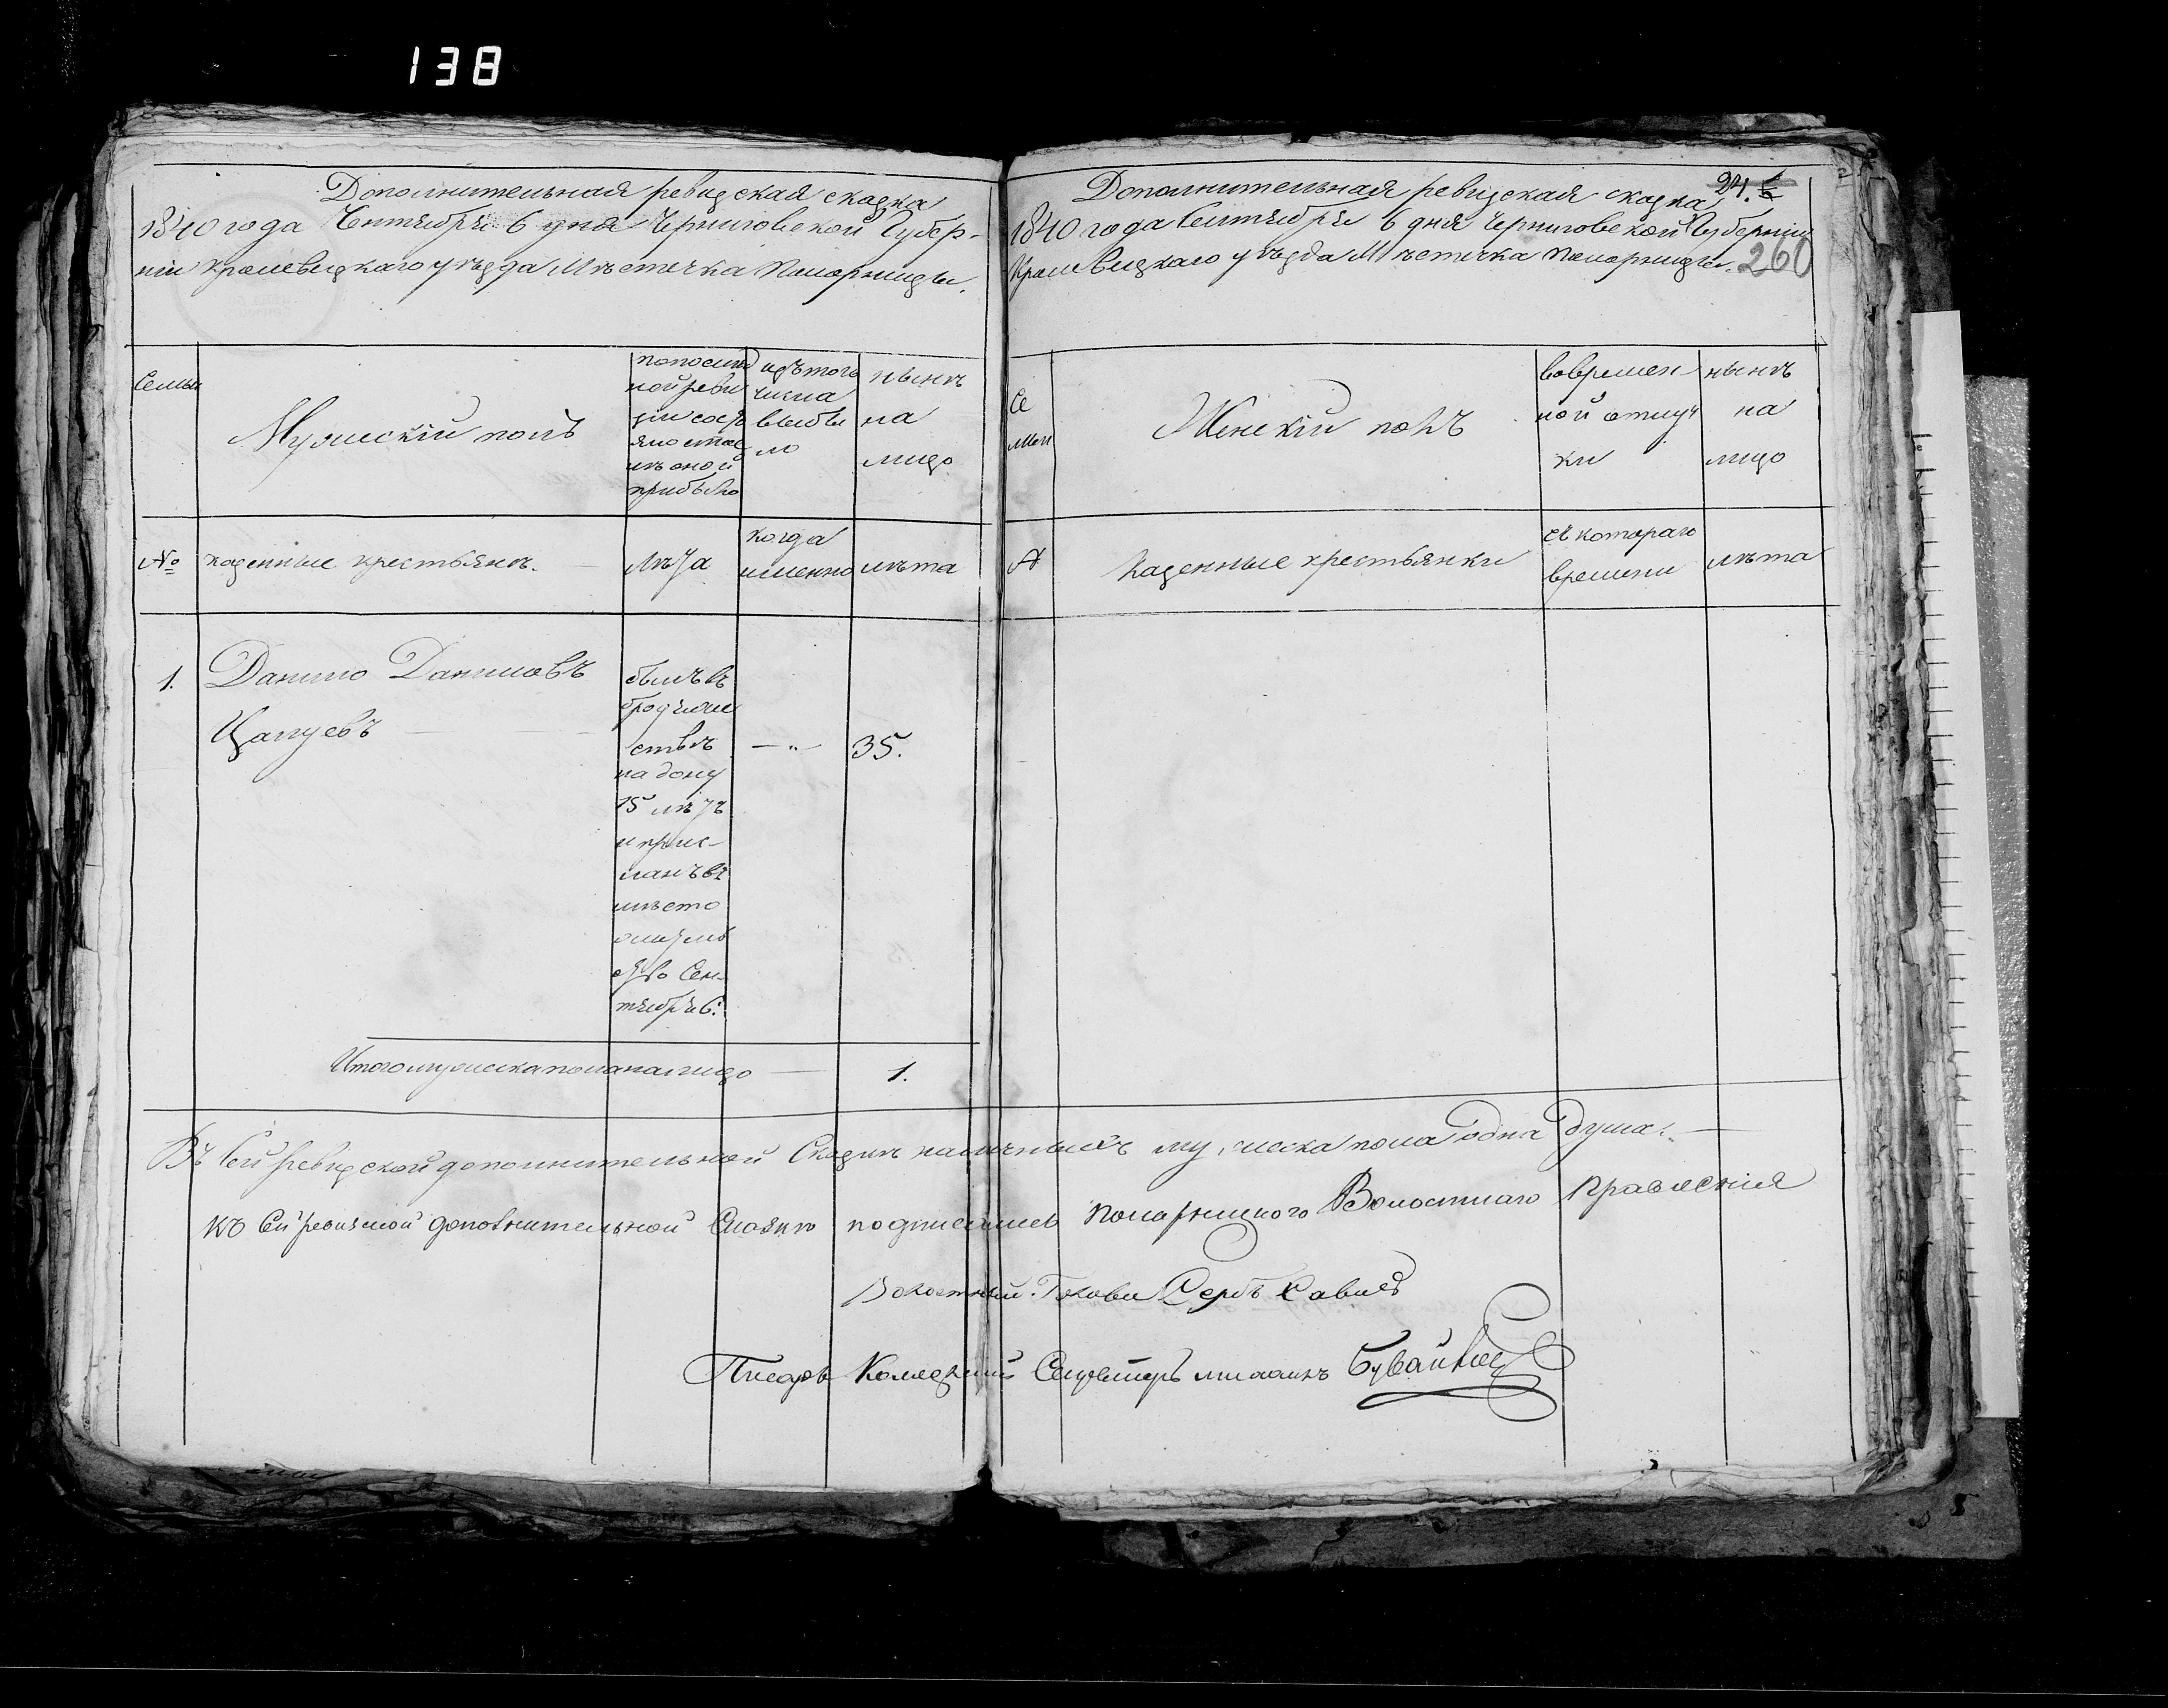 138
Дополнительная ревизская сказка
1840 года Сентября 6 дня Черниговской Губер-
ніи Кролевецкаго уѣзда Мѣстечка Понорницы.
Семьи
Мужескій полъ
по послѣд
ней реви
зіи состо
яло и послѣ
оной
прибыло
изъ того
числа
выбы
ло
нынѣ
на
лицо
№
казенные крестьяне.
Лѣта
когда
именно
лѣта
1.
Данило Даниловъ
Цапуевъ
былъ въ
бродяже
ствѣ
на дону
15 лѣтъ
и прис-
ланъ въ
мѣсто
жительс
тво Сен-
тября 6.
35.
Итого мужеска пола на лицо
1.
24.
Дополнительная ревизская сказка
1840 года Сентября 6 дня Черниговской Губерніи
Кролевецкаго уѣзда Мѣстечка Понорницы.
260
Се
мьи
Женскій полъ
во времен
ной отлуч
ки
нынѣ
на
лицо
казенные крестьянки
съ котораго
времени
лѣта
Въ сей ревизской дополнительной Сказкѣ наличныхъ мужеска пола одна душа.
Къ сей ревизской дополнительной Сказкѣ подписался Понорницкого Волостнаго Правленія
Волостный Голова Сербъ Савичъ
Писарь Колежский Секретарь Бувайло